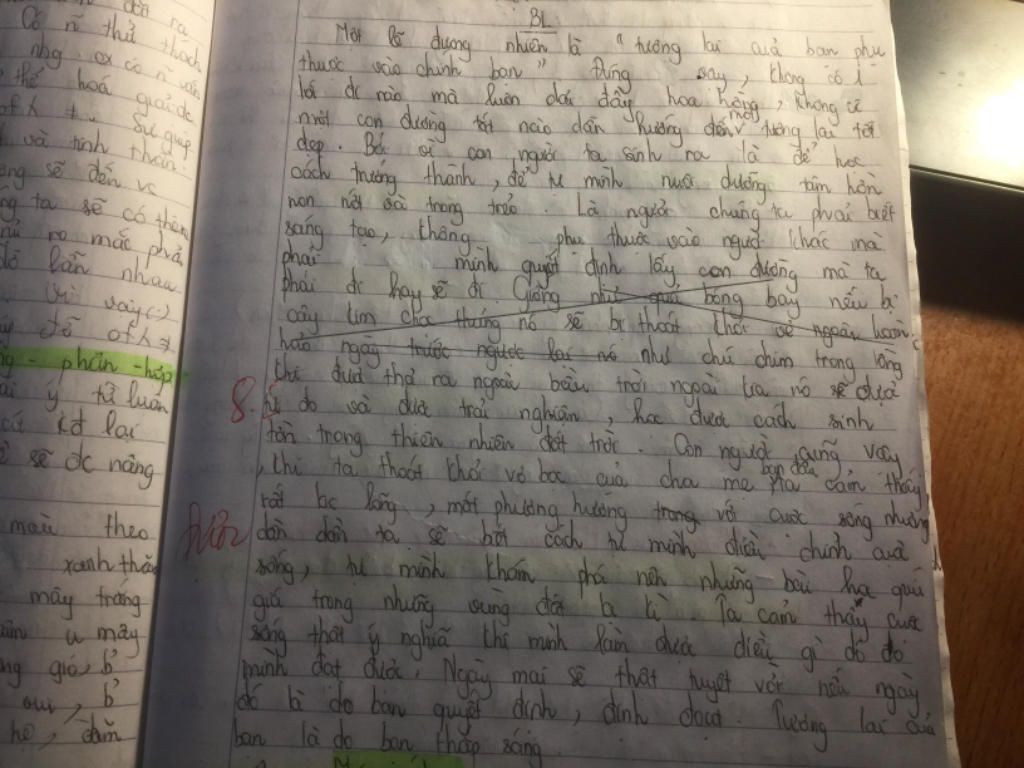 đời ra
Có n thử thách
nhg
thể hoá giải đc
Sự giúp
và tinh thần.
sẽ đến vc
ta sẽ có thêm
rủi ro mắc phải
đỡ lẫn nhau
Vì vậy (:)
phân - hợp
ý tự luận
lại
sẽ đc nâng
màu theo
xanh thẳm
mây trắng
u mây
gió, b'
vui, b'
hè, đằm
BL
Một lẽ dương nhiên là "tương lai của bạn phụ
thuộc vào chính bạn" Đúng vậy, không có l
lối đi nào mà luôn đầy hoa hồng, không có
một con đường tốt nào dẫn hướng đến một tương lai tốt
đẹp. Bởi vì con người ta sinh ra là để học
cách trưởng thành, để tự mình nuôi dưỡng tâm hồn
non nớt và trong trẻo. Là người chúng ta phải biết
sáng tạo, không phụ thuộc vào người khác mà
phải mình quyết định lấy con đường mà ta
phải đi hay sẽ đi. Giống như quả bóng bay nếu bị
cây kim cho thủng nó sẽ bị thoát khỏi vẻ ngoài
hào ngày trước ngược lại nó như chú chim trong lồng
khi được thả ra ngoài bầu trời ngoài kia nó sẽ được
8.
tự do và được trải nghiệm, học được cách sinh
tồn trong thiên nhiên đất trời. Con người cũng vậy
, khi ta thoát khỏi vỏ bọc của cha mẹ ban đầu cảm thấy
rất lạc lõng, mất phương hướng trong với cuộc sống nhưng
dần dần ta sẽ biết cách tự mình điều chỉnh cuộc
sống, tự mình khám phá nên những bài học quý
giá trong những vùng đất lạ kì. Ta cảm thấy cuộc
sống thật ý nghĩa khi mình làm được điều gì đó do
mình đạt được. Ngày mai sẽ thật tuyệt vời nếu ngày
đó là do bạn quyết định, định đoạt. Tương lai của
bạn là do bạn thắp sáng.